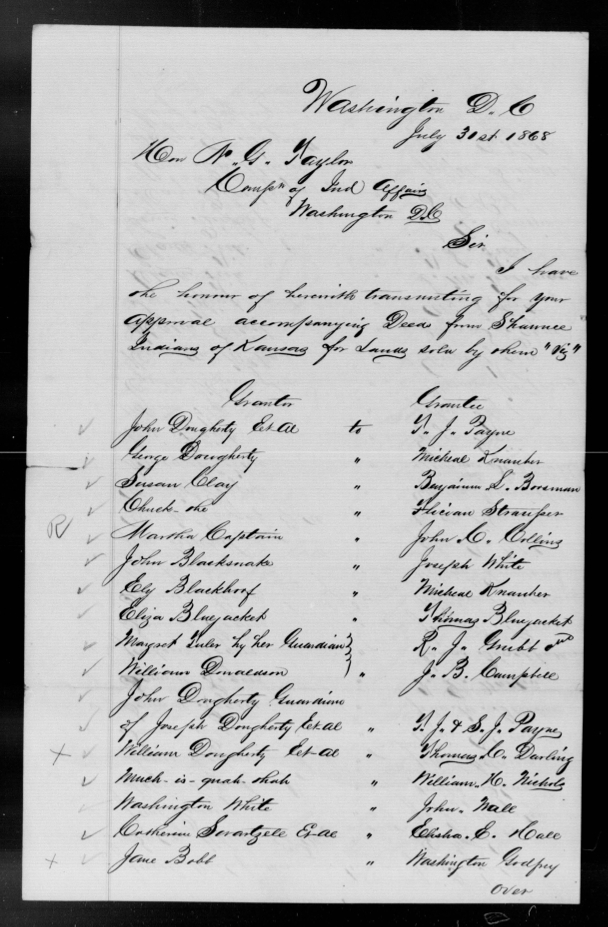 Washington D.C
July 31st 1868
Hon N. G. Taylor
of Ind Affairs
Washington D.C
Sir
I have
the honour of herewith transmitting for your
Approval accompanying Deed from Shawnee
Indians of Kansas for Lands sold by them "Viz"
Grantor Grantee
John Dougherty Et-al to T. J. Payne
George Dougherty " Micheal Knauber
Susan Clay " Benjamin S. Boesman
Chuck-ohe "
R Martha Captain " John C. Colling
John Blacksnake " Joseph White
Ely Blackhoof " Micheal Knauber
Eliza Bluejacket " Thomas Bluejacket
Margret by her Guardian } R. J. Grubb and
William Donaldson } " J. B. Campbell
John Dougherty Guardian
of Joseph Dougherty Et-al " T. J. & S. J. Payne
x William Dougherty Et-al " Thomas C. Darling
Much-is-quah-shah " William H. Nichols
Washington White " John Wall
Catherine Et-al " Elisha E. Hale
x Jane Bobb " Washington Godfrey
over